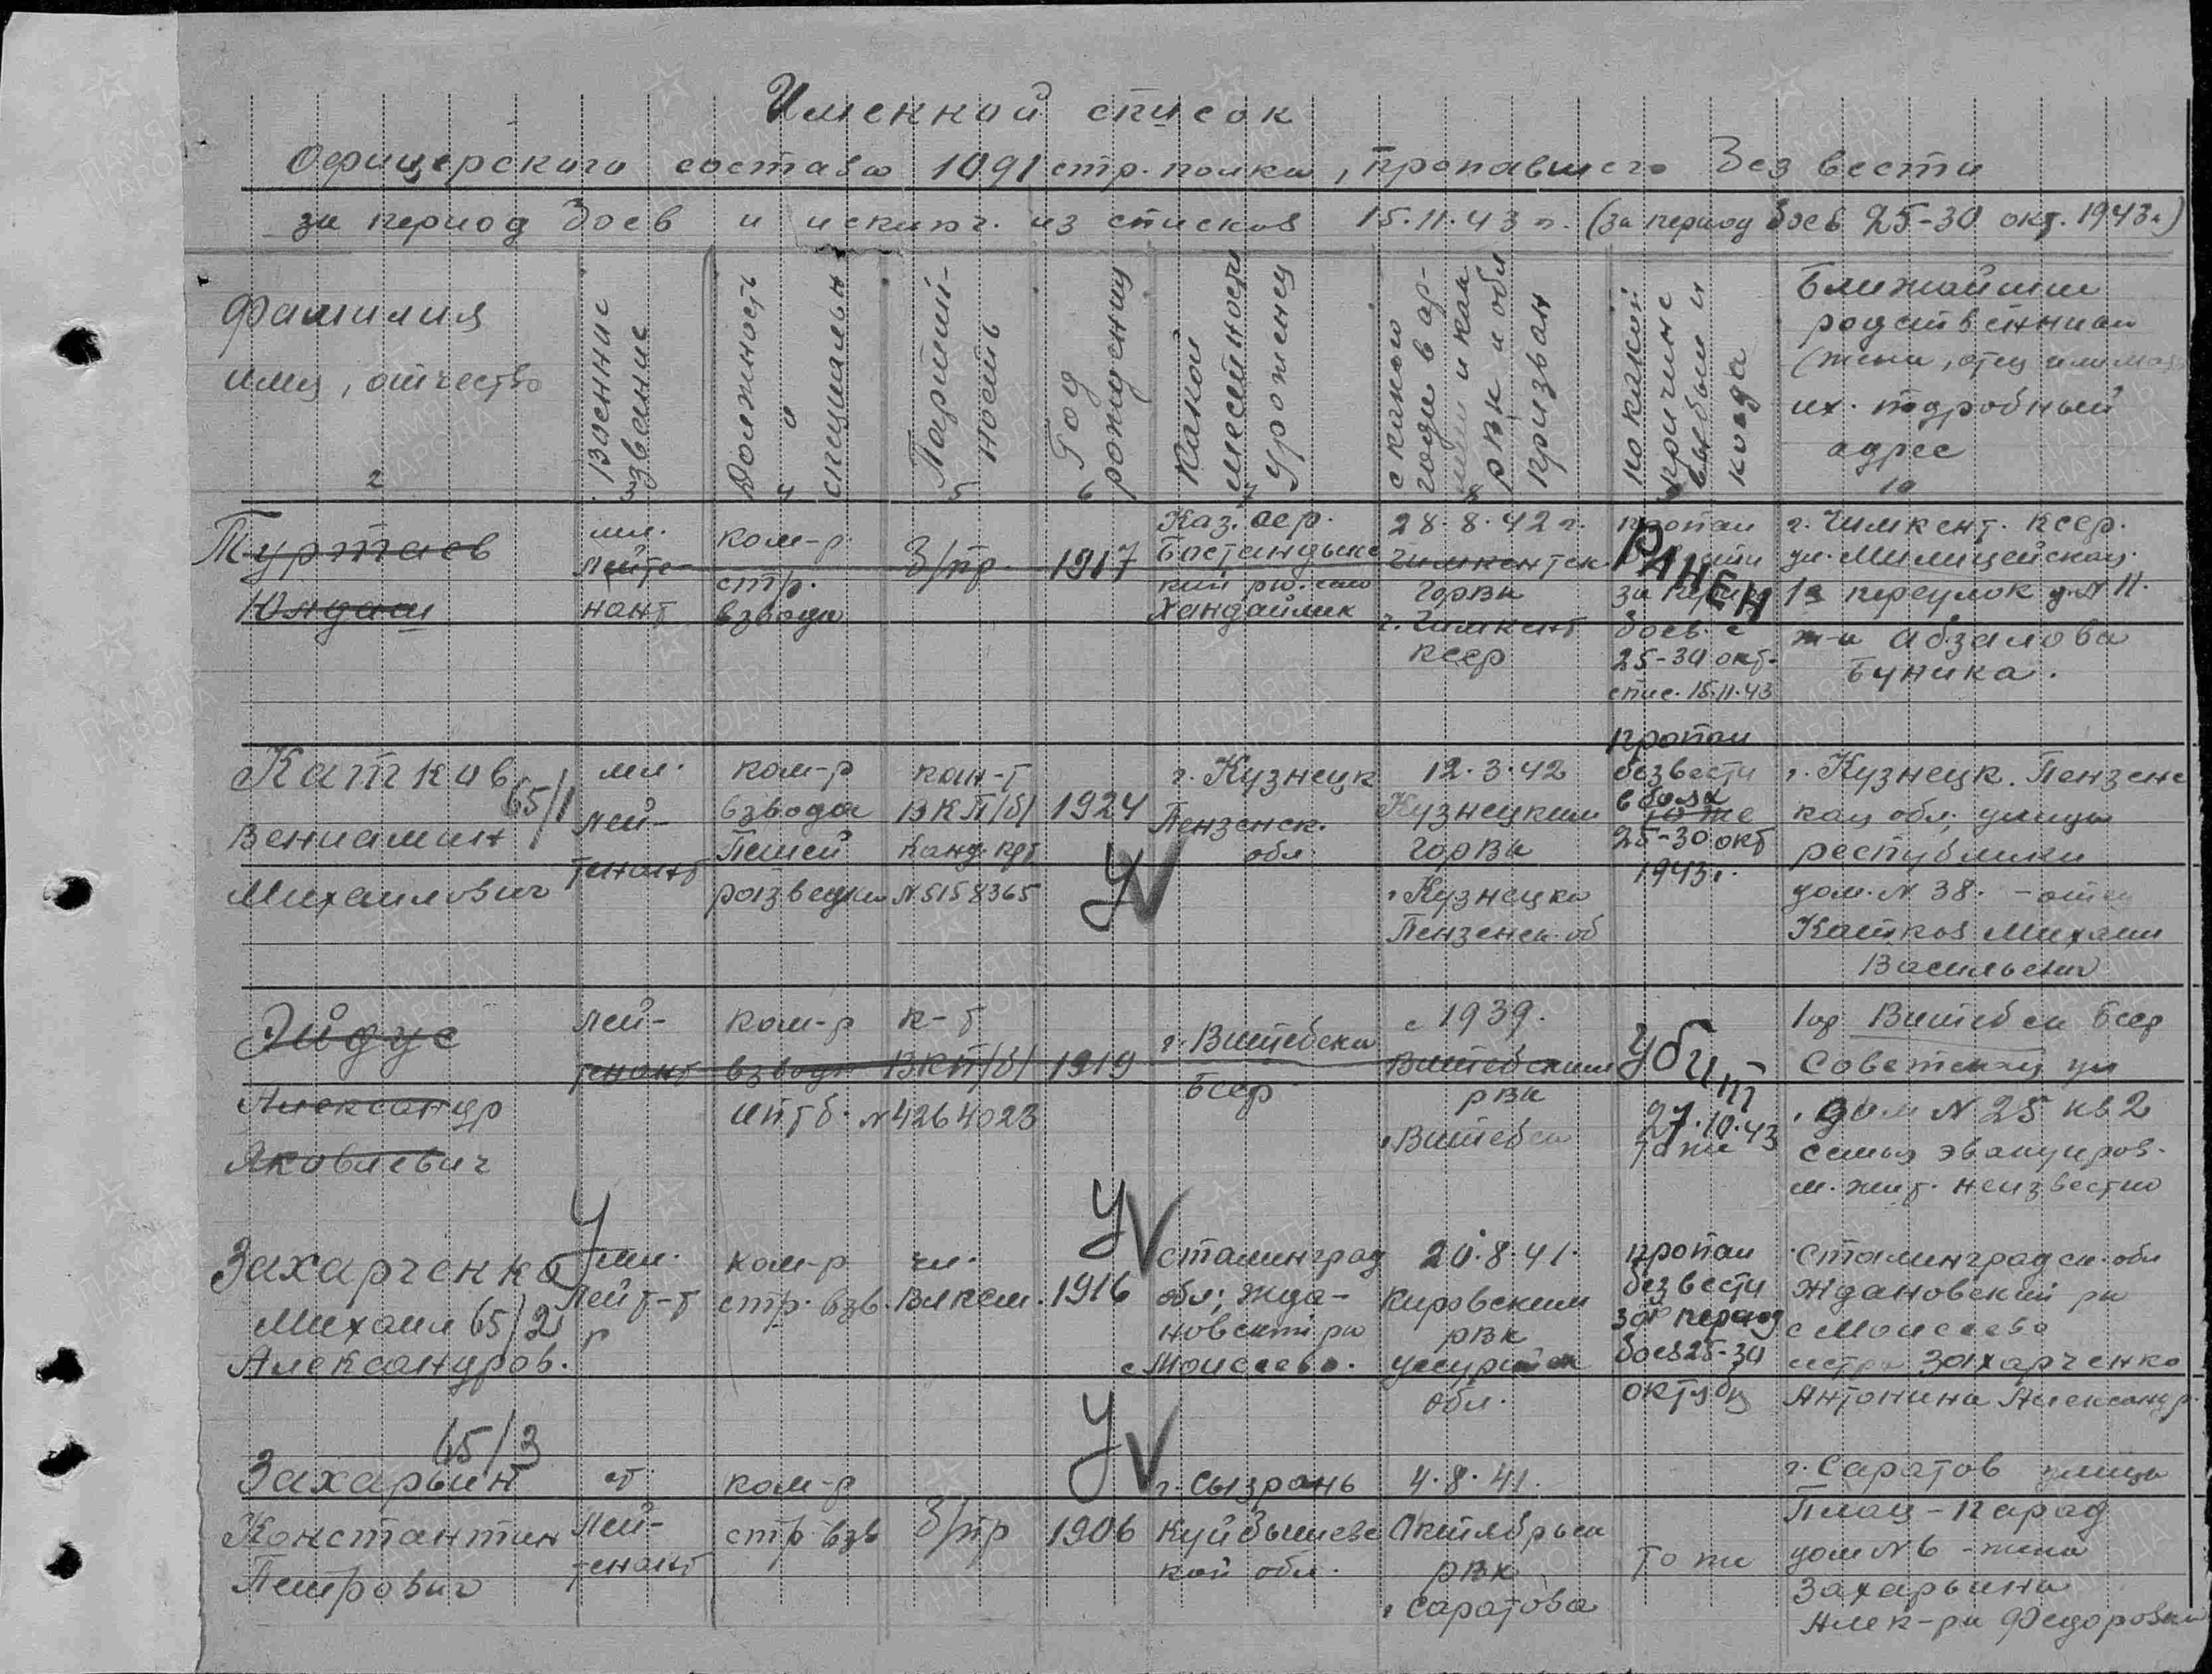 Именной список
Офицерского состава 1091 стр. полка, пропавшего без вести
за период боев и исключ. из списков 15.11.43 г. (за период боев 25-30 окт. 1943г)
Фамилия
имя, отчество
2
Военное
звание
3
Должность
и
специальн
4
Партий-
ность
5
Год
рождения
6
Какой
местности
уроженец
7
с какого
года в ар-
мии и каким
РВК и обл
призван
8
по какой
причине
выбыл и
когда
Ближайшие
родственники
(жена, отец или мать
их. подробный
адрес
10
Туртаев
Юлдаш
мл.
лейте-
нант
ком-р
стр.
взвода
б/пр.
1917
Каз. сср.
Бостандыкс
кий р-н. сел
Хандайлик
28.8.42 г.
Чимкентск.
Горвк
г. Чимкент
ксср
пропал
за период
боев с
25-30 окт.
спис. 15.11.43
РАНЕН
г. Чимкент. Ксср.
ул. Милицейская
1й переулок д. N 11.
ж-а Абзалова
Буника.
Катков 65/1
Вениамин
Михайлович
мл.
лей-
тенант
ком-р
взвода
Пешей
разведки
кан-т
ВКП/б/
Канд. крт
N 5158365
1924
У
г. Кузнецк
Пензенск.
обл
12.3.42
Кузнецким
горвк
г. Кузнецка
Пензенск. об
пропал
безвести
в боях
то же
25-30 окт
1943г.
г. Кузнецк. Пензенс
кая обл; улица
республики
дом. N 38. - отец
Катков Михаил
Васильевич
Эйдус
Александр
Яковлевич
лей-
тенант
ком-р
взвода
иптб.
к-т
ВКП/б/
N 4264023
1919
г. Витебска
Бсср
с 1939.
Витебским
рвк
г. Витебск
убит
27.10.43
то же
Гор Витебск Бсср
Советская ул
дом N 25 кв 2
семья эвакуиров.
м. жит. неизвестно
Захарченко
Михаил 65/2
Александров.
У
мл.
Лейт-т
ком-р
стр. взв.
чл.
Влксм.
1916
У
Сталинград
обл; Жда-
новский р-н
с Моисеево.
20.8.41.
Кировским
рвк
уссурийск
обл.
пропал
безвести
за период
боев 25-30
октября
Сталинградск. обл
Ждановский р-н
с Моисеево
сестра Захарченко
Антонина Александр.
65/3
Захарьин
Константин
Петрович
ст.
лей-
тенант
ком-р
стр взв
б/пр
1906
У
г. Сызрань
Куйбышевс
кой обл.
4.8.41.
Октябрьск
рвк
г. Саратова
то же
г. Саратов улица
Плац-Парад
дом N 6 - жена
Захарьина
Алек-ра Федоровна